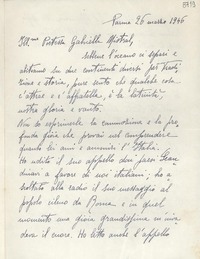 Parma 26 marzo 1946
Ill.ma Poetessa Gabriella Mistral,
sebbene l'oceano ci separi e
abitiamo in due continenti diversi per
e storia, pure sento che qualche cosa
e ci affratella, è la latinità,
nostra gloria e vanto.
Non so esprimerle la commozione e la pro-
fonda gioia che provai nel comprendere
quanto lei ami e ammiri l'Italia.
Ho udito il suo appello
a favore di noi italiani; ho a-
scoltato alla radio il suo messaggio al
popolo da Roma e in quel
momento una gioia grandissima mi inva-
deva il cuore. Ho letto anche l'appello